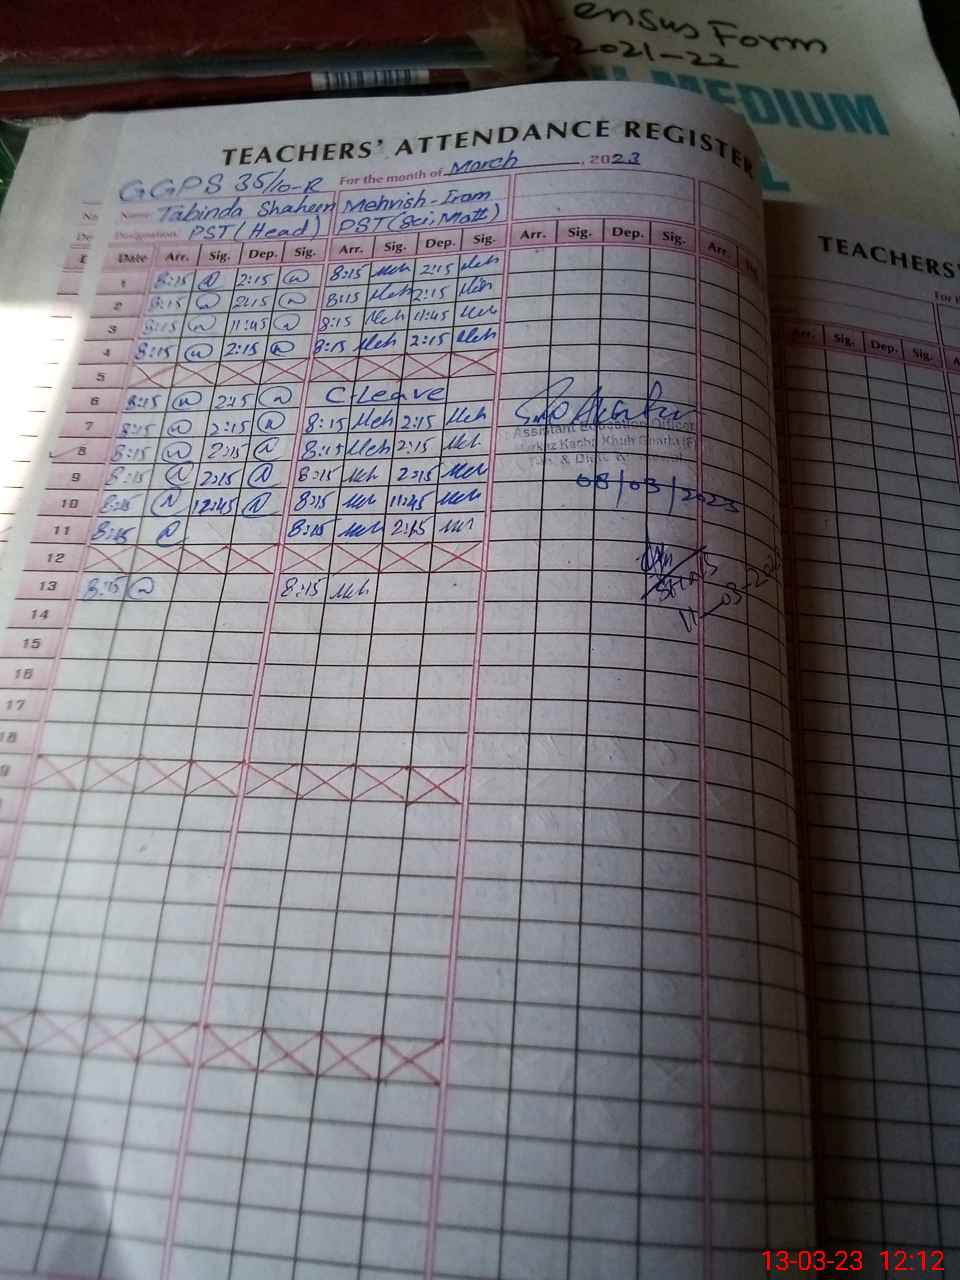 ensus Form
2021-22
MEDIUM
TEACHERS' ATTENDANCE REGISTER
GGPS 35/10-R For the month of March, 2023
Name Tabinda Shaheen Mehvish-Iram
Designation PST (Head) PST (Sci, Math)
Date Arr. Sig. Dep. Sig. Arr. Sig. Dep. Sig. Arr. Sig. Dep. Sig. Arr.
1 8:15 2:15 8:15 Meh 2:15 Meh
2 8:15 2:15 8:15 Meh 2:15 Meh
3 8:15 11:45 8:15 Meh 11:45 Meh
4 8:15 2:15 8:15 Meh 2:15 Meh
5
6 8:15 2:15 C.Leave
7 8:15 2:15 8:15 Meh 2:15 Meh
Assistant Education Officer
8 8:15 2:15 8:15 Meh 2:15 Meh
9 8:15 2:15 8:15 Meh 2:15 Meh
08/03/2023
10 8:15 12:45 8:15 Meh 11:45 Meh
11 8:15 8:15 Meh 2:15 Meh
12
13 8:15 8:15 Meh
11-03-202
14
15
16
17
18
9
TEACHERS'
Arr. Sig. Dep. Sig.
13-03-23 12:12